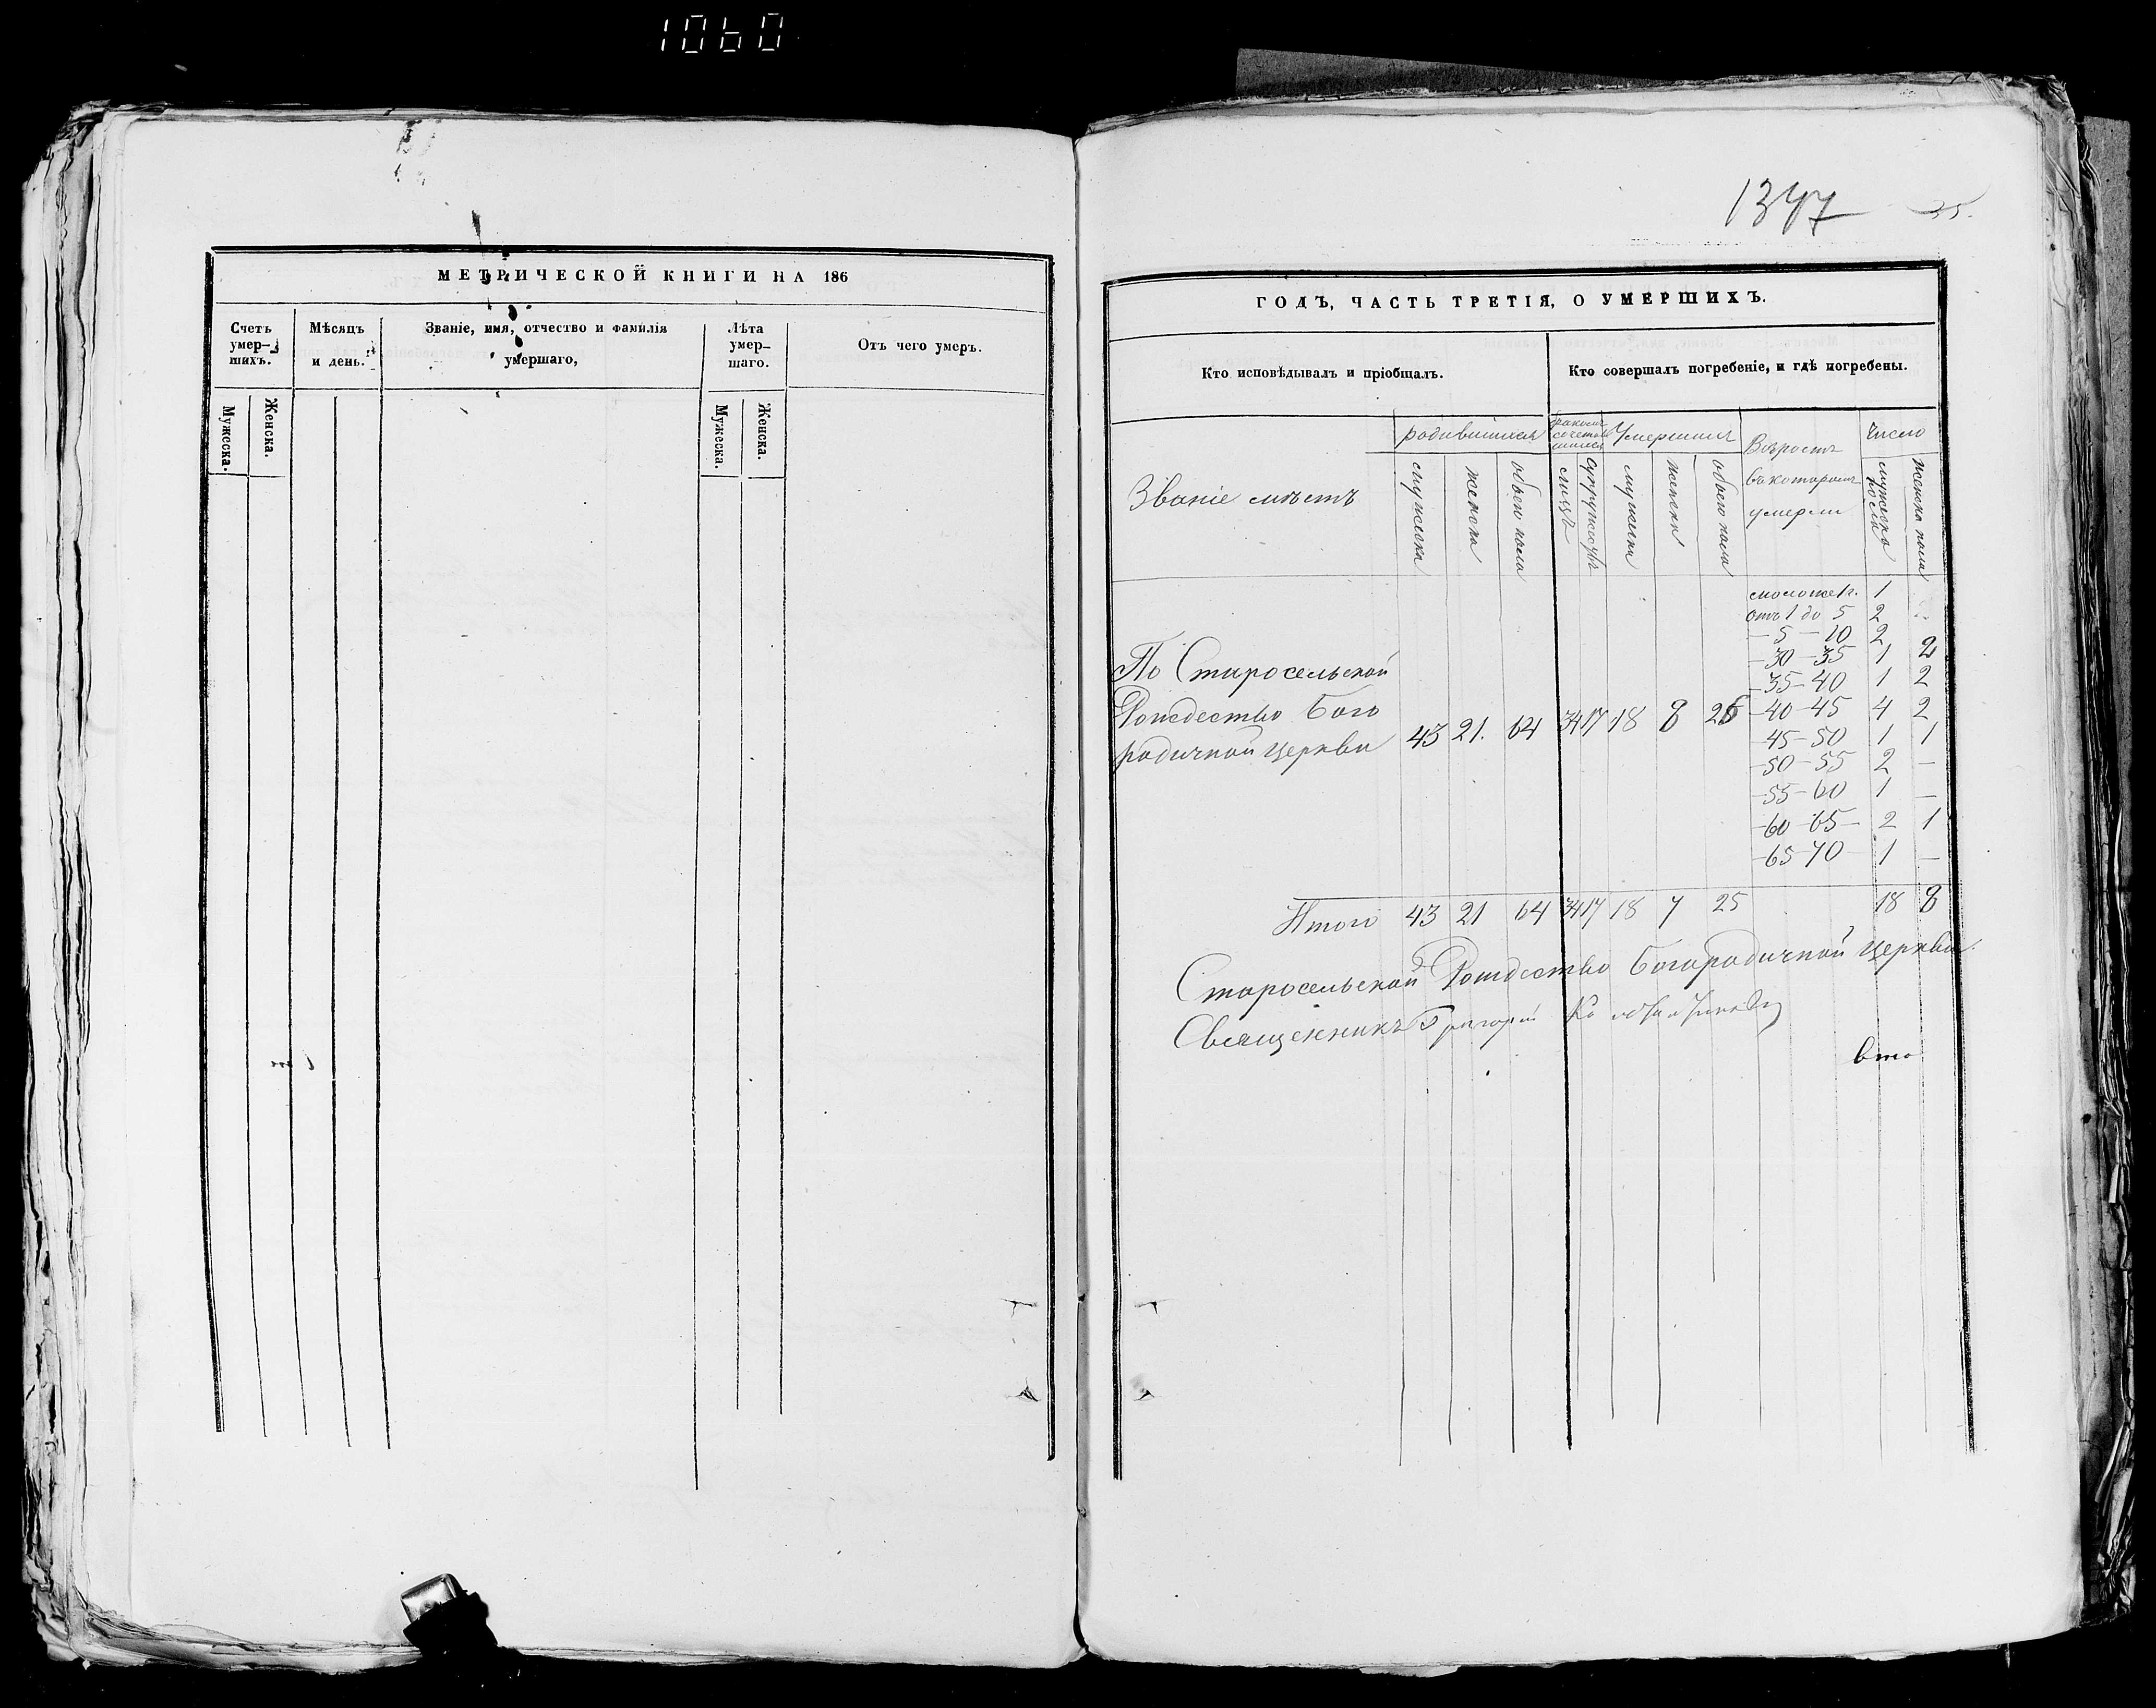 1060
МЕТРИЧЕСКОЙ КНИГИ НА 186
Счетъ умер-шихъ.
Мѣсяцъ и день.
Званіе, имя, отчество и фамилія умершаго,
Лѣта умер-шаго.
Отъ чего умеръ.
Мужеска.
Женска.
Мужеска.
Женска.
1347
35.
ГОДЪ, ЧАСТЬ ТРЕТІЯ, О УМЕРШИХЪ.
Кто исповѣдывалъ и пріобщалъ.
Кто совершалъ погребеніе, и гдѣ погребены.
Званіе мѣстъ
родившихся
Умершихъ
Возростъ
въ которомъ
умерли
Число
мужеска
женска
обоего пола
лицъ
супружествъ
мужеска
женска
обоего пола
мужеска пола
женска пола
моложе 1 г. 1
отъ 1 до 5 2
—5—10 2
—30—35 1 2
—35—40 1 2
По Старосельской
Рождество Бого
родичной церкви 43 21. 64 34 17 18 8 26
—40—45 4 2
—45—50 1 1
—50—55 2 —
—55—60 1 —
—60—65— 2 1
—65—70— 1 —
Итого 43 21 64 34 17 18 7 25 18 8
Старосельской Рождество Богородичной церкви
Священникъ Григорій